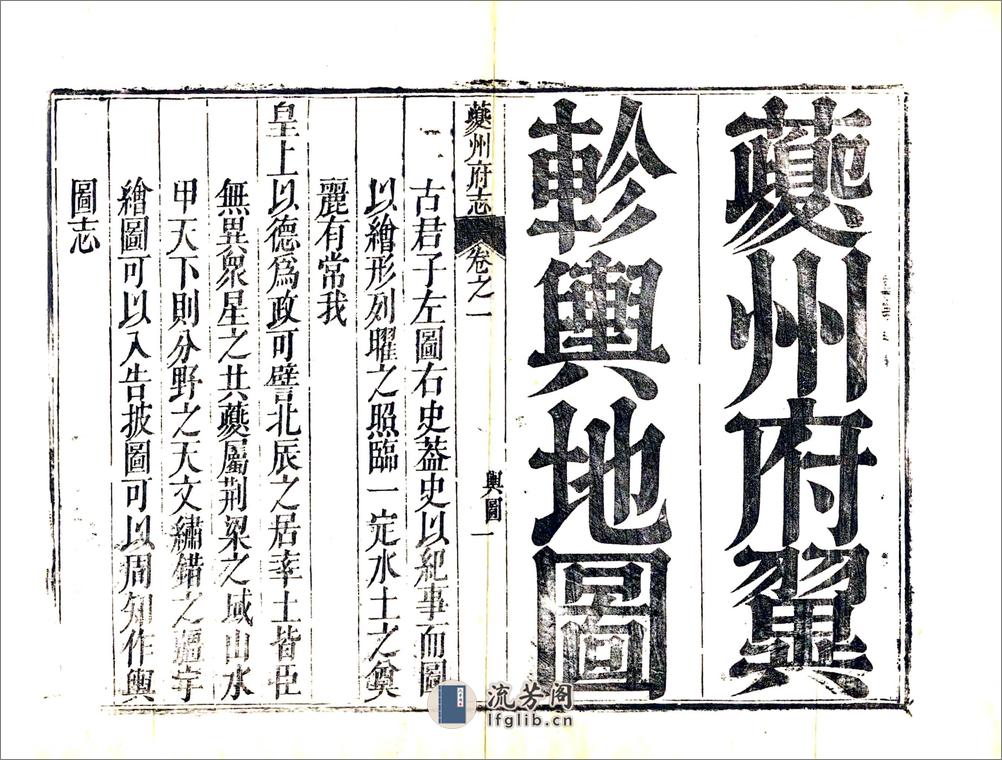 夔州府翼
軫輿地圖
夔州府志
卷之一
輿圖
一
古君子左圖右史葢史以紀事而圖
以繪形列曜之照臨一定水土之奠
麗有常我
皇上以德爲政可譬北辰之居率土皆臣
無異衆星之共夔屬荆梁之域山水
甲天下則分野之天文繡錯之疆宇
繪圖可以入告披圖可以周知作輿
圖志
流芳阁
lfglib.cn